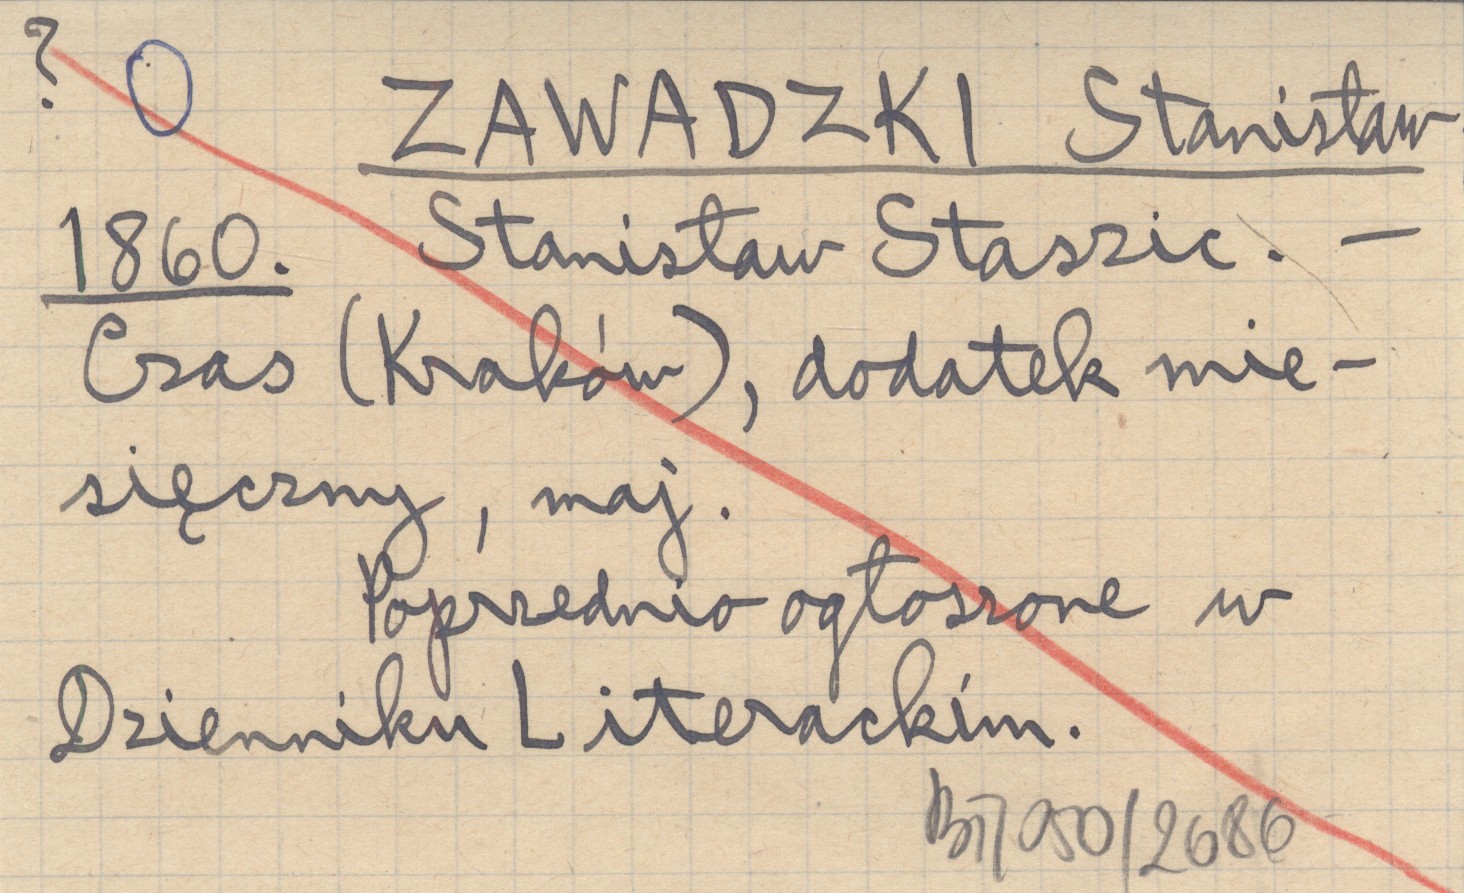 ? 0 ZAWADZKI Stanisław
1860. Stanisław Staszic. —
Czas (Kraków), dodatek mie-
sięczny, maj.
Poprzednio ogłoszone w
Dzienniku Literackim.
050/2686